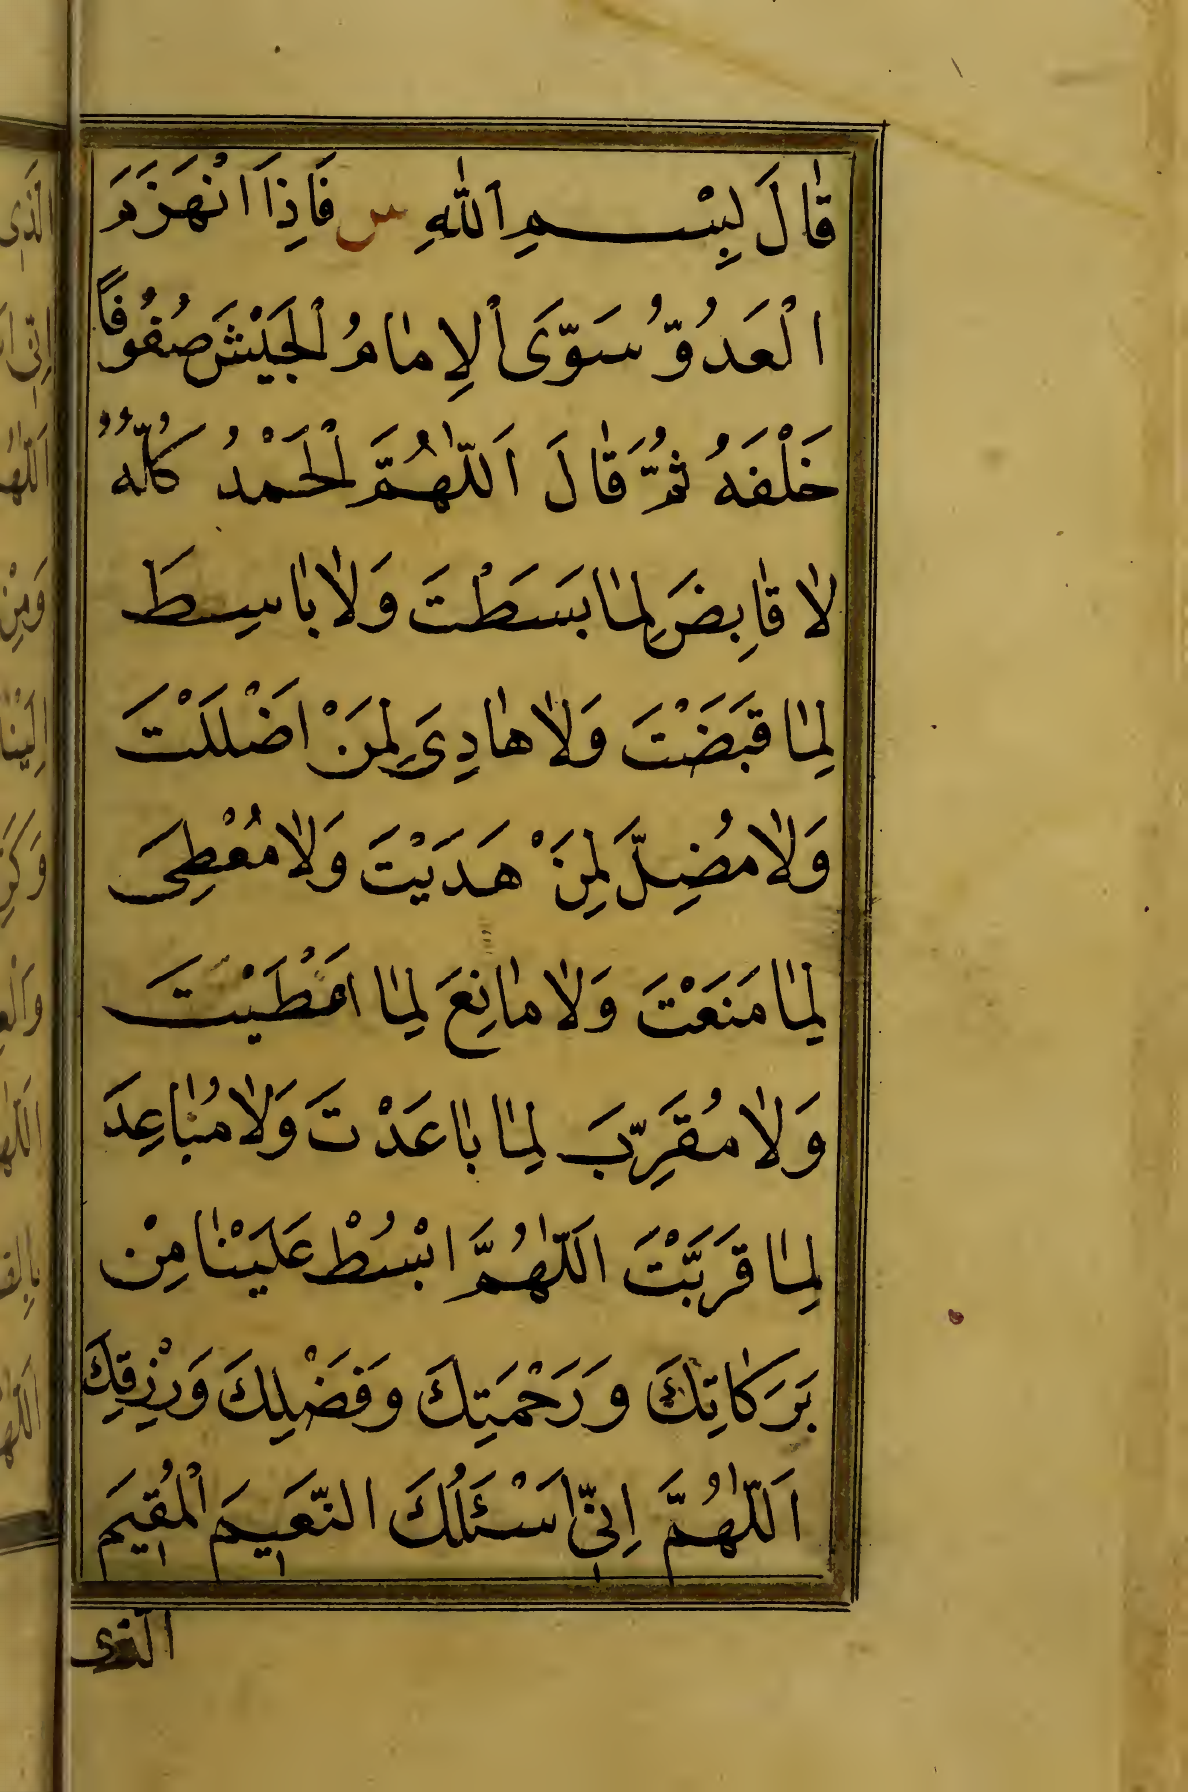 قَالَ بِسْمِ ٱللّٰهِ س فَاِذَا انْهَزَمَ
الْعَدُوُّ سَوَّى ٱلاِمَامُ الْجَيْشَ صُفُوفًا
خَلْفَهُ ثُمَّ قَالَ اَللّٰهُمَّ لَكَ الْحَمْدُ كُلُّهُ
لَا قَابِضَ لِمَا بَسَطْتَ وَلَا بَاسِطَ
لِمَا قَبَضْتَ وَلَا هَادِىَ لِمَنْ اَضْلَلْتَ
وَلَا مُضِلَّ لِمَنْ هَدَيْتَ وَلَا مُعْطِىَ
لِمَا مَنَعْتَ وَلَا مَانِعَ لِمَا اعْطَيْتَ
وَلَا مُقَرِّبَ لِمَا بَاعَدْتَ وَلَا مُبَاعِدَ
لِمَا قَرَّبْتَ اللّٰهُمَّ ابْسُطْ عَلَيْنَا مِنْ
بَرَكَاتِكَ وَرَحْمَتِكَ وَفَضْلِكَ وَرِزْقِكَ
اَللّٰهُمَّ اِنِّى اَسْئَلُكَ النَّعِيمَ الْمُقِيمَ
الَّذى